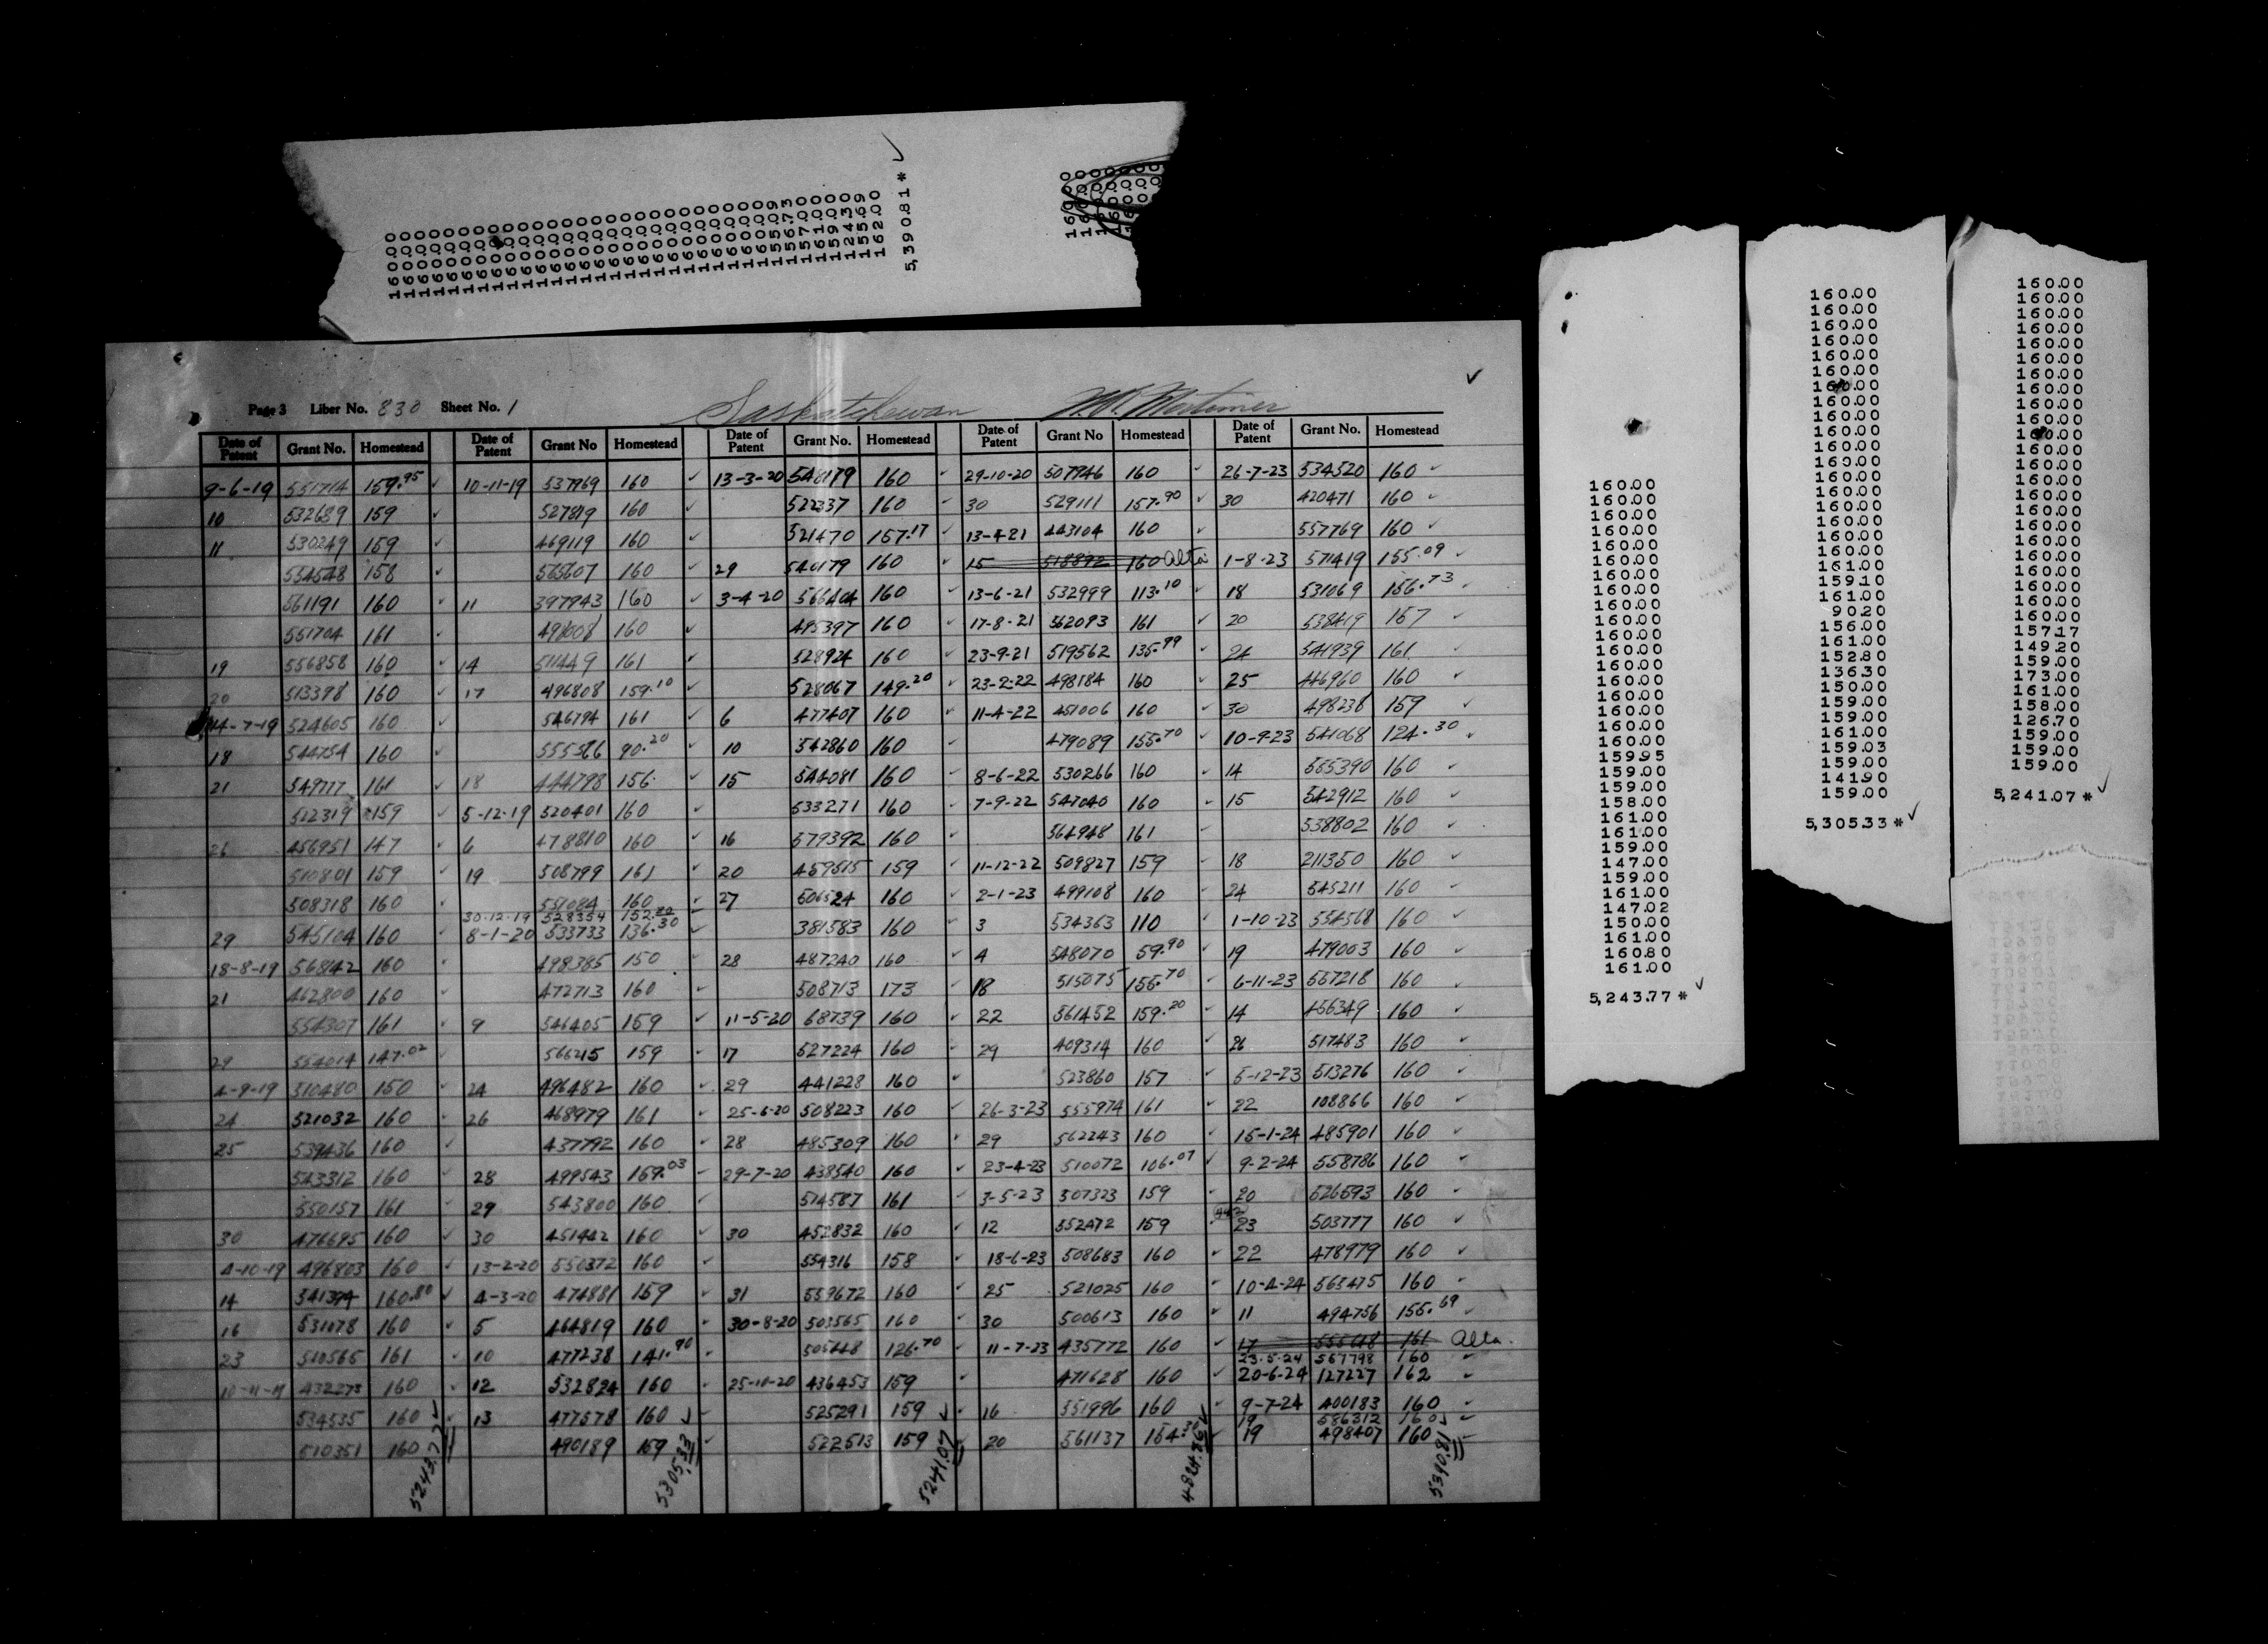 160.00
160.00
160.00
160.00
155.09
156.73
157.00
161.00
159.00
124.30
155.69
162.00
5,390.81*✓
Page 3 Liber No. 830 Sheet No. 1 Saskatchewan ✓
Date of Patent Grant No. Homestead Date of Patent Grant No Homestead Date of Patent Grant No. Homestead Date of Patent Grant No Homestead Date of Patent Grant No. Homestead
9-6-19 551714 159.95 ✓ 10-11-19 537969 160 ✓ 13-3-20 548179 160 ✓ 29-10-20 507946 160 ✓ 26-7-23 534520 160 ✓
10 532689 159 ✓ 527819 160 ✓ 522337 160 ✓ 30 529111 157.90 ✓ 30 420471 160 ✓
11 530249 159 ✓ 469119 160 ✓ 521470 157.17 ✓ 13-4-21 443104 160 ✓ 557769 160 ✓
554548 158 ✓ 565607 160 ✓ 29 540179 160 ✓ 15 518892 160 Alta 1-8-23 571419 155.09 ✓
561191 160 ✓ 11 397943 160 ✓ 3-4-20 566404 160 ✓ 13-6-21 532999 113.10 ✓ 18 531069 156.73 ✓
551704 161 ✓ 491008 160 ✓ 495397 160 ✓ 17-8-21 562093 161 ✓ 20 538419 157 ✓
19 556858 160 ✓ 14 511449 161 ✓ 528924 160 ✓ 23-9-21 519562 135.99 ✓ 24 541939 161 ✓
20 513398 160 ✓ 17 496808 159.10 ✓ 528067 149.20 ✓ 23-2-22 498184 160 ✓ 25 446960 160 ✓
14-7-19 524605 160 ✓ 546794 161 ✓ 6 477407 160 ✓ 11-4-22 451006 160 ✓ 30 498238 159 ✓
18 544754 160 ✓ 555566 90.20 ✓ 10 542860 160 ✓ 479089 155.70 ✓ 10-9-23 541068 124.30 ✓
21 549777 161 ✓ 18 444798 156 ✓ 15 544081 160 ✓ 8-6-22 530266 160 ✓ 14 555390 160 ✓
522319 159 ✓ 5-12-19 520401 160 ✓ 533271 160 ✓ 7-9-22 547040 160 ✓ 15 542912 160 ✓
26 456951 147 ✓ 6 478810 160 ✓ 16 579392 160 ✓ 564948 161 ✓ 538802 160 ✓
510801 159 ✓ 19 508799 161 ✓ 20 459515 159 ✓ 11-12-22 509827 159 ✓ 18 211350 160 ✓
508318 160 ✓ 551084 160 ✓ 27 506524 160 ✓ 2-1-23 499108 160 ✓ 24 545211 160 ✓
30-12-19 528354 152.80
29 545104 160 ✓ 8-1-20 533733 136.30 ✓ 381583 160 ✓ 3 534363 110 ✓ 1-10-23 554568 160 ✓
18-8-19 568142 160 ✓ 498385 150 ✓ 28 487240 160 ✓ 4 548070 59.90 ✓ 19 479003 160 ✓
21 462800 160 ✓ 472713 160 ✓ 508713 173 ✓ 18 515075 155.70 ✓ 6-11-23 557218 160 ✓
554307 161 ✓ 9 546405 159 ✓ 11-5-20 68739 160 ✓ 22 561452 159.20 ✓ 14 456349 160 ✓
29 554014 147.02 ✓ 566215 159 ✓ 17 527224 160 ✓ 29 409314 160 ✓ 26 517483 160 ✓
4-9-19 510480 150 ✓ 24 496482 160 ✓ 29 441228 160 ✓ 523860 157 ✓ 5-12-23 513276 160 ✓
24 521032 160 ✓ 26 468979 161 ✓ 25-6-20 508223 160 ✓ 26-3-23 555974 161 ✓ 22 108866 160 ✓
25 539436 160 ✓ 437792 160 ✓ 28 485309 160 ✓ 29 562243 160 ✓ 15-1-24 485901 160 ✓
543312 160 ✓ 28 499543 159.03 ✓ 29-7-20 438540 160 ✓ 23-4-23 510072 106.07 ✓ 9-2-24 558786 160 ✓
550157 161 ✓ 29 543800 160 ✓ 514587 161 ✓ 3-5-23 507323 159 ✓ 20 526593 160 ✓
30 476695 160 ✓ 30 451442 160 ✓ 30 452832 160 ✓ 12 552472 159 23 503777 160 ✓
4-10-19 496803 160 ✓ 13-2-20 550372 160 ✓ 554316 158 ✓ 18-6-23 508683 160 ✓ 22 478979 160 ✓
14 541394 160.80 ✓ 4-3-20 474881 159 ✓ 31 559672 160 ✓ 25 521025 160 ✓ 10-4-24 563475 160 ✓
16 531078 160 ✓ 5 464819 160 ✓ 30-8-20 503565 160 ✓ 30 500613 160 ✓ 11 494756 155.69 ✓
23 510565 161 ✓ 10 477238 141.90 ✓ 505448 126.70 ✓ 11-7-23 435772 160 ✓ 17 161 Alta.
23-5-24 567798 160 ✓
10-11-19 432273 160 ✓ 12 532824 160 ✓ 25-10-20 436453 159 ✓ 471628 160 ✓ 20-6-24 127227 162 ✓
534535 160 ✓ 13 477578 160 ✓ 525291 159 ✓ 16 551996 160 ✓ 9-7-24 400183 160 ✓
19 586312 160 ✓
510351 160 490189 159 ✓ 522513 159 20 561137 154.30 ✓ 19 498407 160
5243.77 5305.33 5241.07 4824.86 5390.81
160.00
160.00
160.00
160.00
160.00
160.00
160.00
160.00
160.00
160.00
160.00
160.00
160.00
160.00
160.00
160.00
160.00
160.00
159.95
159.00
159.00
158.00
161.00
161.00
159.00
147.00
159.00
161.00
147.02
150.00
161.00
160.80
161.00
5,243.77*✓
160.00
160.00
160.00
160.00
160.00
160.00
160.00
160.00
160.00
160.00
160.00
160.00
160.00
160.00
160.00
160.00
160.00
160.00
161.00
159.10
161.00
90.20
156.00
161.00
152.80
136.30
150.00
159.00
159.00
161.00
159.03
159.00
141.90
159.00
5,305.33*✓
160.00
160.00
160.00
160.00
160.00
160.00
160.00
160.00
160.00
160.00
160.00
160.00
160.00
160.00
160.00
160.00
160.00
160.00
160.00
160.00
160.00
160.00
160.00
157.17
149.20
159.00
173.00
161.00
158.00
126.70
159.00
159.00
159.00
5,241.07*✓